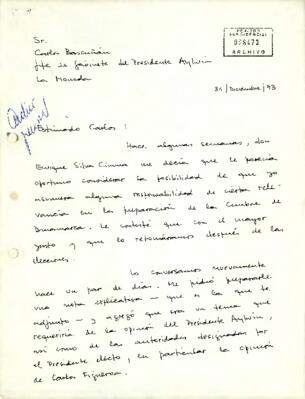 Sr.
Carlos Bascuñán
Jefe de Gabinete del Presidente Aylwin
La Moneda
PERIODO
PRESIDENCIAL
008472
ARCHIVO
31/Diciembre/93
Archivo
Estimado Carlos:
Hace algunas semanas, don
Enrique Silva Cimma me decía que le parecía
oportuno considerar la posibilidad de que yo
asumiera alguna responsabilidad de cierta rele-
vancia en la preparación de la Cumbre de
Dinamarca. Le contesté que con el mayor
gusto y que lo retomáramos después de las
elecciones.
Lo conversamos nuevamente
hace un par de días. Me pidió prepararle
una nota explicativa – que es la que te
adjunto – y agregó que era un tema que
requeriría de la opinión del Presidente Aylwin,
así como de las autoridades designadas por
el Presidente electo, en particular la opinión
de Carlos Figueroa.